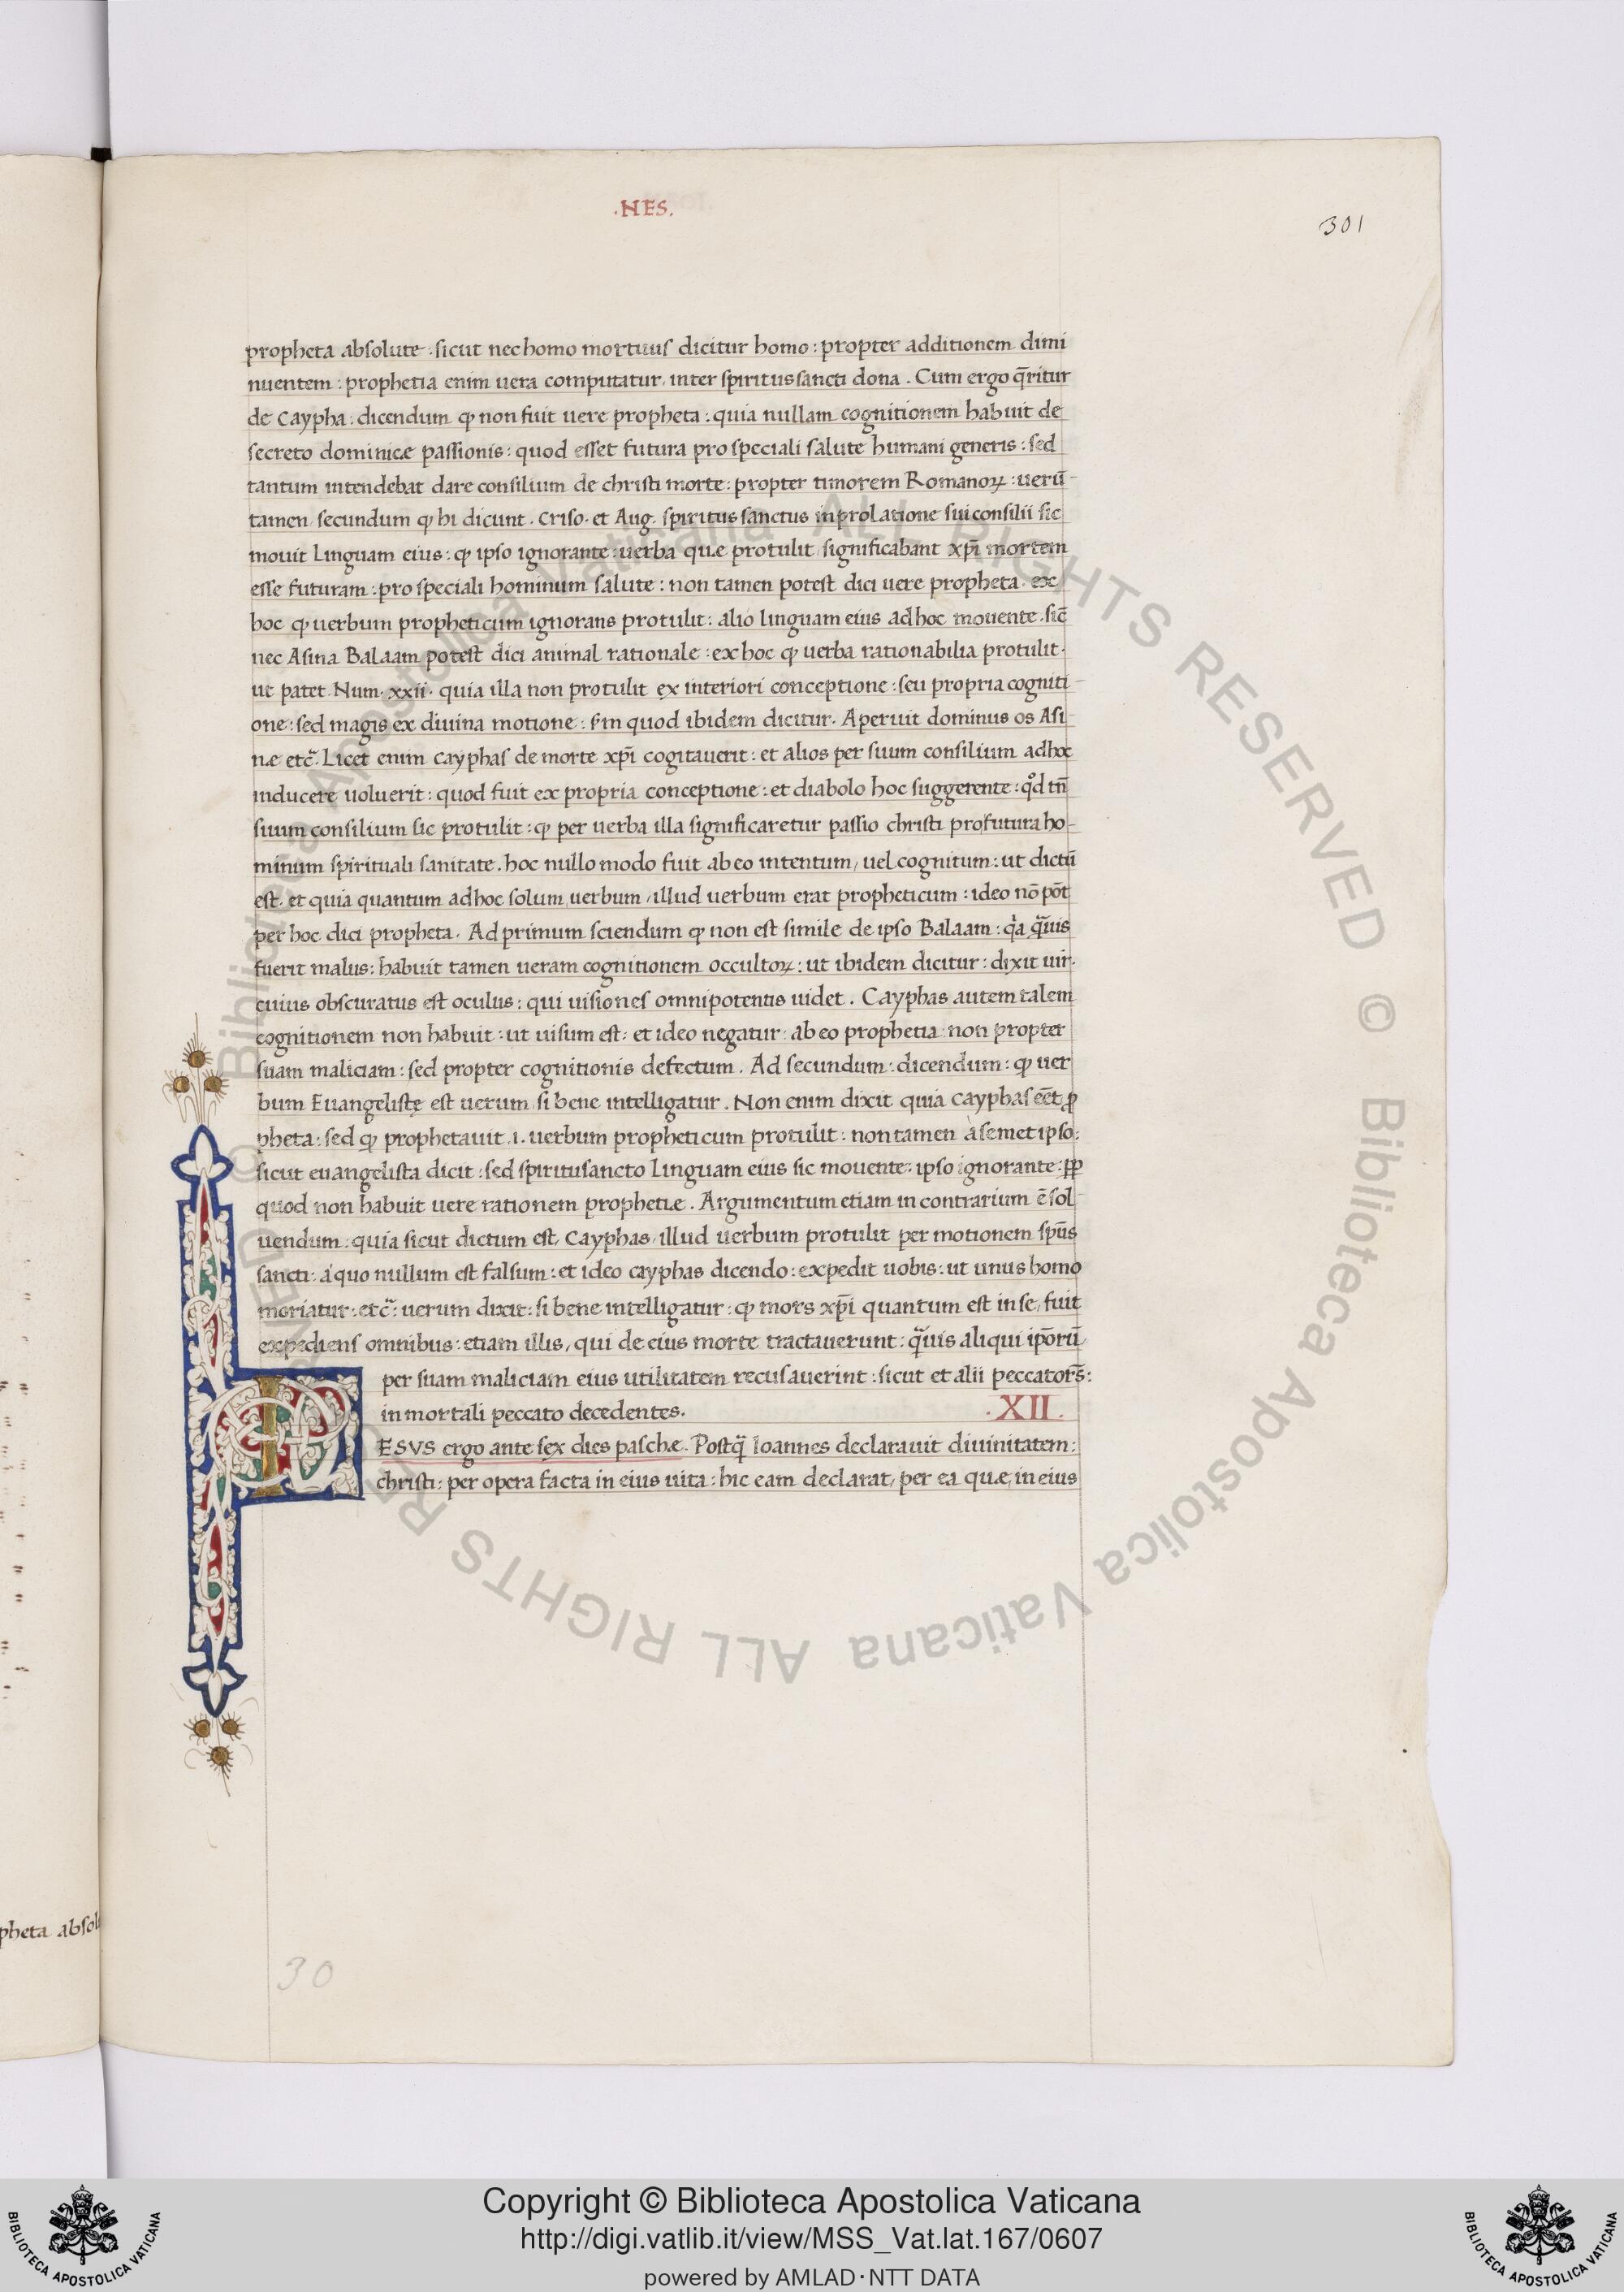 .NES.
301
propheta absolute . sicut nec homo mortuus dicitur homo : propter additionem dimi
nuentem : prophetia enim uera computatur, inter spiritus sancti dona . Cum ergo q̄ritur
de Caypha : dicendum ꝙ non fuit uere propheta : quia nullam cognitionem habuit de
secreto dominicæ passionis : quod esset futura pro speciali salute humani generis : sed
tantum intendebat dare consilium de christi morte : propter timorem Romanoꝝ : uerū-
tamen secundum ꝙ hi dicunt . Criso . et Aug . spiritus sanctus in prolatione sui consilii sic
mouit linguam eius : ꝙ ipso ignorante : uerba quæ protulit significabant xp̄i mortem
esse futuram : pro speciali hominum salute : non tamen potest dici uere propheta . ex
hoc ꝙ uerbum propheticum ignorans protulit : alio linguam eius ad hoc mouente . sic̄
nec Asina Balaam potest dici animal rationale : ex hoc ꝙ uerba rationabilia protulit .
ut patet Num . xxii . quia illa non protulit ex interiori conceptione : seu propria cogniti-
one : sed magis ex diuina motione : ẜm quod ibidem dicitur . Aperuit dominus os Asi-
næ etc̄ . Licet enim cayphas de morte xp̄i cogitauerit : et alios per suum consilium ad hoc
inducere uoluerit : quod fuit ex propria conceptione : et diabolo hoc suggerente : qͦd tn̄
suum consilium sic protulit : ꝙ per uerba illa significaretur passio christi profutura ho-
minum spirituali sanitate . hoc nullo modo fuit ab eo intentum, uel cognitum : ut dictū
est . et quia quantum ad hoc solum uerbum, illud uerbum erat propheticum : ideo nō pōt
per hoc dici propheta . Ad primum sciendum ꝙ non est simile de ipso Balaam : qͣa qͣuis
fuerit malus : habuit tamen ueram cognitionem occultoꝝ : ut ibidem dicitur : dixit uir .
cuius obscuratus est oculus : qui uisiones omnipotentis uidet . Cayphas autem talem
cognitionem non habuit : ut uisum est : et ideo negatur ab eo prophetia non propter
suam maliciam : sed propter cognitionis defectum . Ad secundum : dicendum : ꝙ uer
bum Euangelistę est uerum si bene intelligatur . Non enim dixit quia cayphas eēt ꝓ
pheta : sed ꝙ prophetauit .i. uerbum propheticum protulit : non tamen a semet ipso :
sicut euangelista dicit : sed spiritusancto linguam eius sic mouente : ipso ignorante : ꝓp̄
quod non habuit uere rationem prophetiæ . Argumentum etiam in contrarium ē sol-
uendum : quia sicut dictum est, Cayphas, illud uerbum protulit per motionem spūs
sancti : a quo nullum est falsum : et ideo cayphas dicendo : expedit uobis : ut unus homo
moriatur : etc̄ : uerum dixit : si bene intelligatur : ꝙ mors xp̄i quantum est in se, fuit
expediens omnibus : etiam illis, qui de eius morte tractauerunt : qͣuis aliqui ip̄orū,
per suam maliciam eius utilitatem recusauerint : sicut et alii peccator̄s :
in mortali peccato decedentes .
. XII .
I ESVS ergo ante sex dies paschæ . Postq̄ Ioannes declarauit diuinitatem :
christi : per opera facta in eius uita : hic eam declarat, per ea quæ, in eius
pheta absol
30
© Biblioteca Apostolica Vaticana ALL RIGHTS RESERVED © Biblioteca Apostolica Vaticana ALL RIGHTS RESERVED
BIBLIOTECA APOSTOLICA VATICANA
Copyright © Biblioteca Apostolica Vaticana
http://digi.vatlib.it/view/MSS_Vat.lat.167/0607
powered by AMLAD · NTT DATA
BIBLIOTECA APOSTOLICA VATICANA